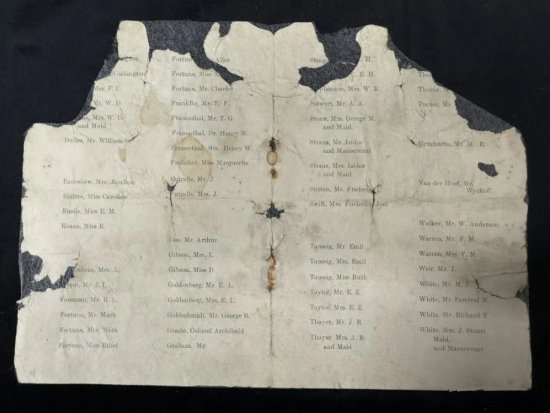 Washington
F. C.
Mr. W. D.
Mrs. W. D.
and Maid
Dulles, Mr. William
Earnshaw, Mrs. Boulton
Endres, Miss Caroline
Eustis, Miss E. M.
Evans, Miss E.
Mrs. A.
Mr. J. I.
Foreman, Mr. B. L.
Fortune, Mr. Mark
Fortune, Mrs. Mark
Fortune, Miss Ethel
Alice
Fortune, Miss
Fortune, Mr. Charles
Franklin, Mr. T. P.
Frauenthal, Mr. T. G.
Frauenthal, Dr. Henry W.
Frauenthal, Mrs. Henry W.
Frolicher, Miss Marguerite
Futrelle, Mr. J.
Futrelle, Mrs. J.
Gee, Mr. Arthur
Gibson, Mrs. L.
Gibson, Miss D.
Goldenberg, Mr. E. L.
Goldenberg, Mrs. E. L.
Goldschmidt, Mr. George B.
Gracie, Colonel Archibald
Graham, Mr.
H.
E. H.
Mrs. W. B.
Stewart, Mr. A. A.
Stone, Mrs. George M.
and Maid
Straus, Mr. Isidor
and Manservant
Straus, Mrs. Isidor
and Maid
Sutton, Mr. Frederick
Swift, Mrs. Frederick Joel
Taussig, Mr. Emil
Taussig, Mrs. Emil
Taussig, Miss Ruth
Taylor, Mr. E. Z.
Taylor, Mrs. E. Z.
Thayer, Mr. J. B.
Thayer, Mrs. J. B.
and Maid
Tucker, Mr.
Uruchurtu, Mr. M. R.
Van der Hoef, Mr.
Wyckoff
Walker, Mr. W. Anderson
Warren, Mr. F. M.
Warren, Mrs. F. M.
Weir, Mr. J.
White, Mr. M. J.
White, Mr. Percival W.
White, Mr. Richard F.
White, Mrs. J. Stuart
Maid,
and Manservant